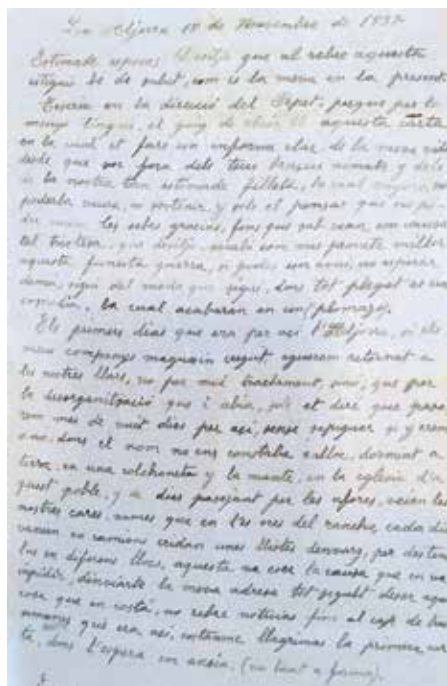 La Aljorra 18 de Novembre de 1937
Estimada esposa desitjo que al rebre aquesta
estigui be de salut, com es la meva en la present
Escric en la direcció del Pepet, perque pas lo
menys tingui, el goig de rebre aquesta carta
en la cual et fare un informe clar de la meva vida
desde que soc fora dels teus braços aimats y dels
de la nostra tan estimada filleta, la cual
poderla veure, no sortirie, y sols al pensar que no po-
dre veure les sebes gracies, fins que sab cuan, em causa
tal tristesa, que desitjo, acabi com mes promte millor
aquesta funesta guerra, si podes ser avui, no esperar
dema, sigui del modo que sigui, dons tot plegat es una
comedia, la cual acabaran en un (plomazo).
Els primers dias que era per aci l'Aljorra, si els
meus companys maguesin seguit aguerem retornat a
les nostres llars, no per mal tractament, sino, que per
la desorganització que i abia, sols et dire que pasa
rem mes de vuit dias per aci, sense sapiguer si y erem
o no, dors el nom no ens constaba enlloc, dormint a
terra, en una colchoneta y la manta, en la iglesia d'a
quest poble, y de dias pasejant per les afores, veien les
nostres cares, nomes que en les ores del rancho, cada dia
venien en camions cridan unes llistes denviarg, per destina
los en diferens llocs, aquesta va eser la causa que em va
inpidir, dinviarte la meva adresa tot seguit deser aqui
cosa que em costá, no rebre noticias fins al cap de dues
semanes que era aci, costanme llagrimas la primera car
ta, dons l'espera em ansia, (no tant a forma).